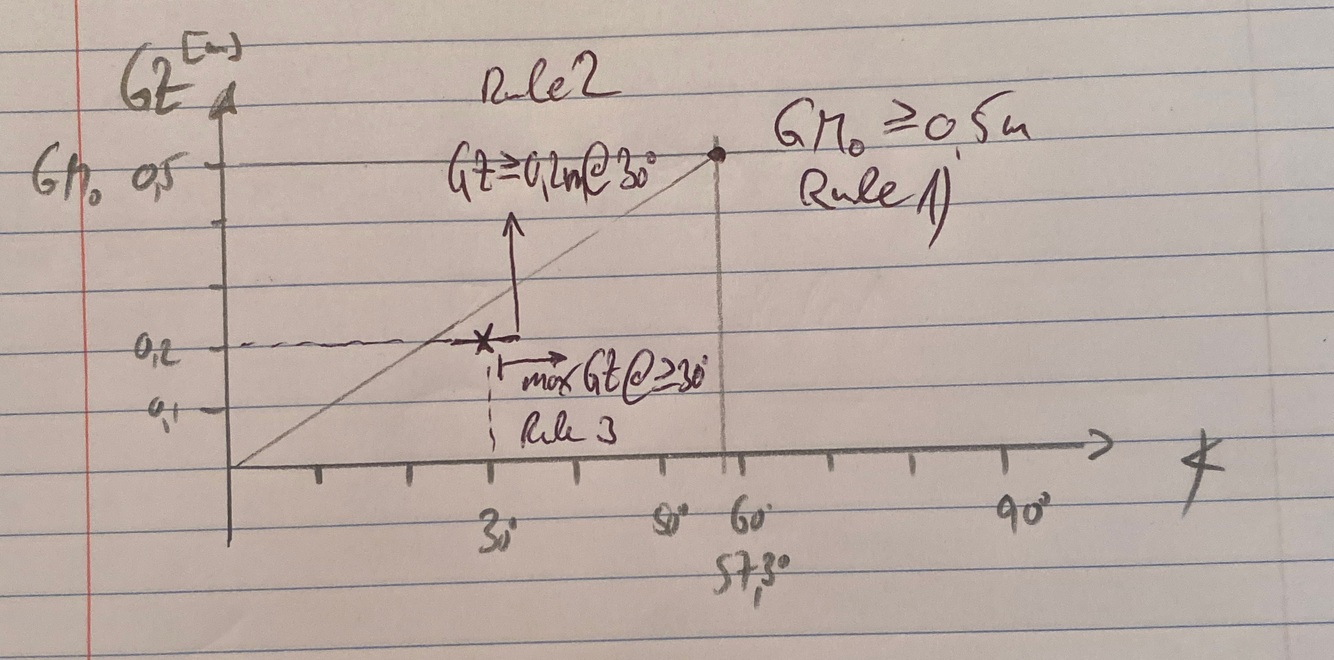 GZ [m]
Rule 2
GM₀ ≥ 0,5m
Rule 1)
GM₀ 0,5
GZ ≥ 0,2m @ 30°
0,2
max GZ @ ≥ 30°
0,1
Rule 3
30° 50° 60° 90°
57,3°